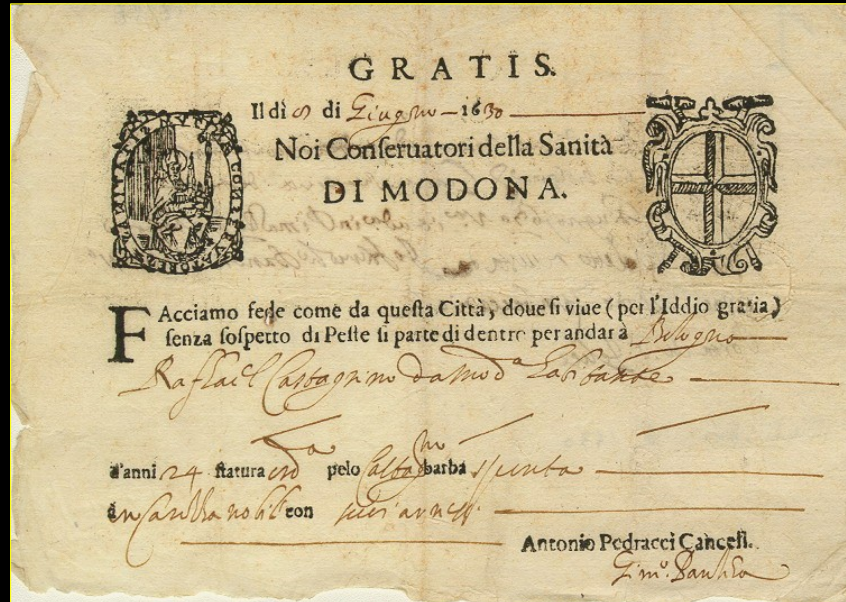 GRATIS.
Il dì 8 di Giugno 1630
Noi Conſeruatori della Sanità
DI MODONA.
FAcciamo fede come da queſta Città, doue ſi viue (per l'Iddio gratia)
ſenza ſoſpetto di Peſte ſi parte di dentro per andar à Bologna
Raffael Castagnino da Mod.ª
d'anni 24 ſtatura ord.ª pelo Castag.no barba spunta
con
Antonio Pedracci Cancell.